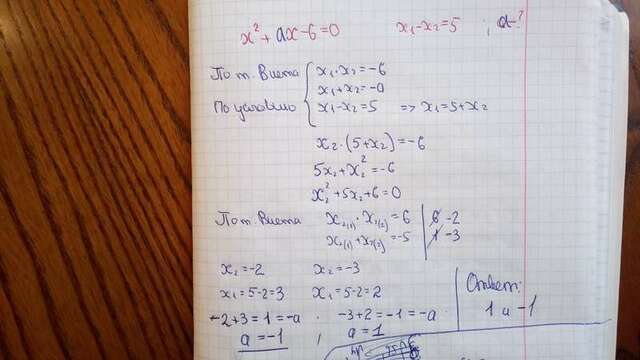 x² + ax - 6 = 0 x₁ - x₂ = 5 ; a - ?
По т. Виета x₁ · x₂ = -6
x₁ + x₂ = -a
По условию x₁ - x₂ = 5 => x₁ = 5 + x₂
x₂ · (5 + x₂) = -6
5x₂ + x₂² = -6
x₂² + 5x₂ + 6 = 0
По т. Виета x₂₍₁₎ · x₂₍₂₎ = 6 -2
x₂₍₁₎ + x₂₍₂₎ = -5 -3
x₂ = -2 x₂ = -3
x₁ = 5 - 2 = 3 x₁ = 5 - 2 = 2
-2 + 3 = 1 = -a . -3 + 2 = -1 = -a
a = -1 ; a = 1
Ответ:
1 и -1